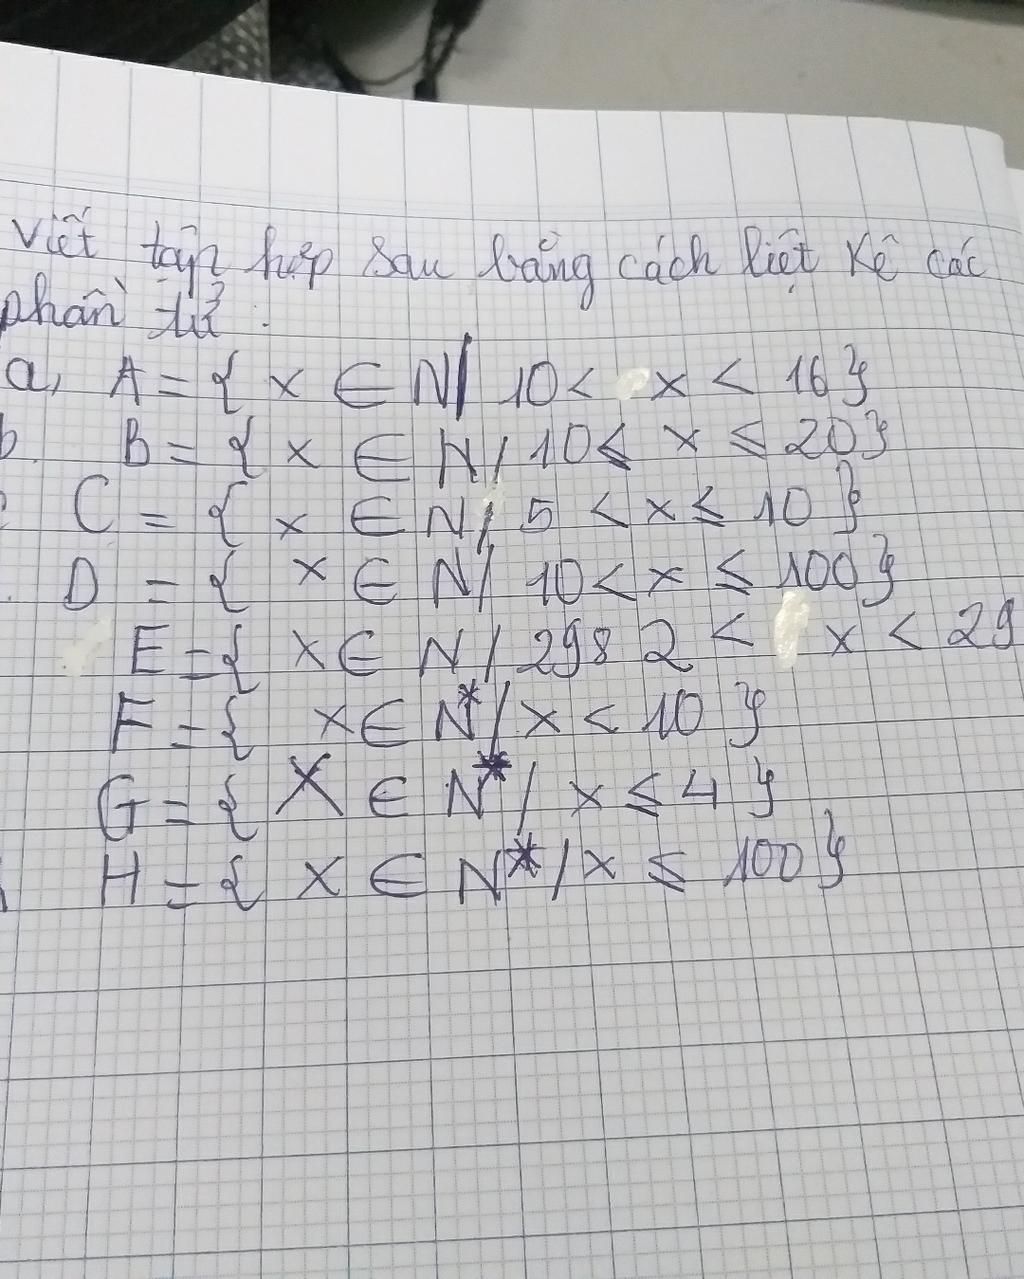 Viết tập hợp sau bằng cách liệt kê các
phần tử :
a, A = { x ∈ N/ 10 < x < 16}
b. B = { x ∈ N/ 10 ≤ x ≤ 20}
C = { x ∈ N/ 5 < x ≤ 10 }
D = { x ∈ N/ 10 < x ≤ 100}
E = { x ∈ N/ 298 2 < x < 29
F = { x ∈ N*/ x < 10 }
G = { X ∈ N*/ x ≤ 4 }
H = { X ∈ N*/ x ≤ 100}